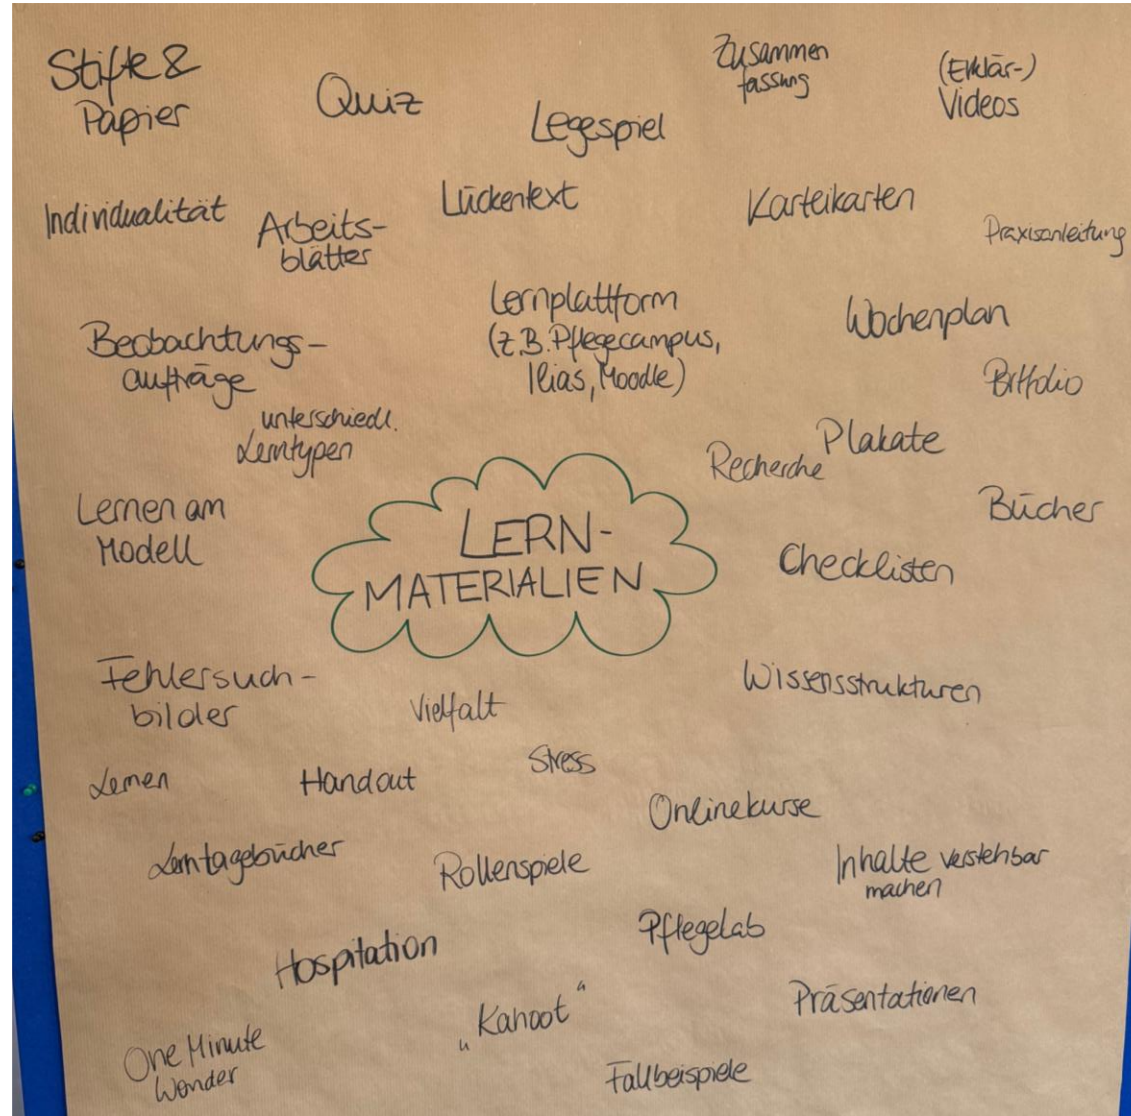 Stifte &
Papier
Quiz
Legespiel
Zusammen
fassung
(Erklär-)
Videos
Individualität
Arbeits-
blätter
Lückentext
Karteikarten
Praxisanleitung
Beobachtungs-
aufträge
Lernplattform
(z.B. Pflegecampus,
Ilias, Moodle)
Wochenplan
Portfolio
unterschiedl.
Lerntypen
Recherche
Plakate
Lernen am
Modell
LERN-
MATERIALIEN
Bücher
Checklisten
Fehlersuch-
bilder
Vielfalt
Wissensstrukturen
Lernen
Handout
Stress
Onlinekurse
Lerntagebücher
Rollenspiele
Inhalte verstehbar
machen
Hospitation
Pflegelab
One Minute
Wonder
„Kahoot“
Präsentationen
Fallbeispiele